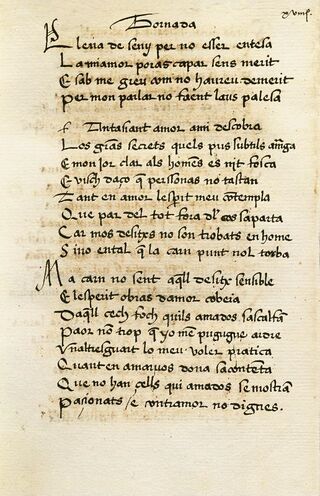 Tornada
xviiij.
Plena de seny per no esser entesa
La miamor poras capar sens merit
E sab me greu com no haureu demerit
Per mon parlar no faent laus palesa
Fantasiant amor ami descobra
Los grans secrets quels pus subtils amaga
E mon jor clar als homens es nit fosca
E visch daço q̄ persones no tastan
Tant en amor lesperit meu contempla
Que par del tot fora dl̄ cos saparta
Car mos desitxs no son trobats en home
Sino en tal q̄ la carn punt nol torba
Ma carn no sent aq̄ll desitx sensible
E lesperit obras damor cobeia
Daq̄ll cech foch quils amados sascalfan
Paor no trop q̄ yo me pugugue ardre
Vn altresguart lo meu voler pratica
Quant en amaruos dona sacontenta
Que no han çells qui amados se mostran
Pasionats e contramor no dignes.